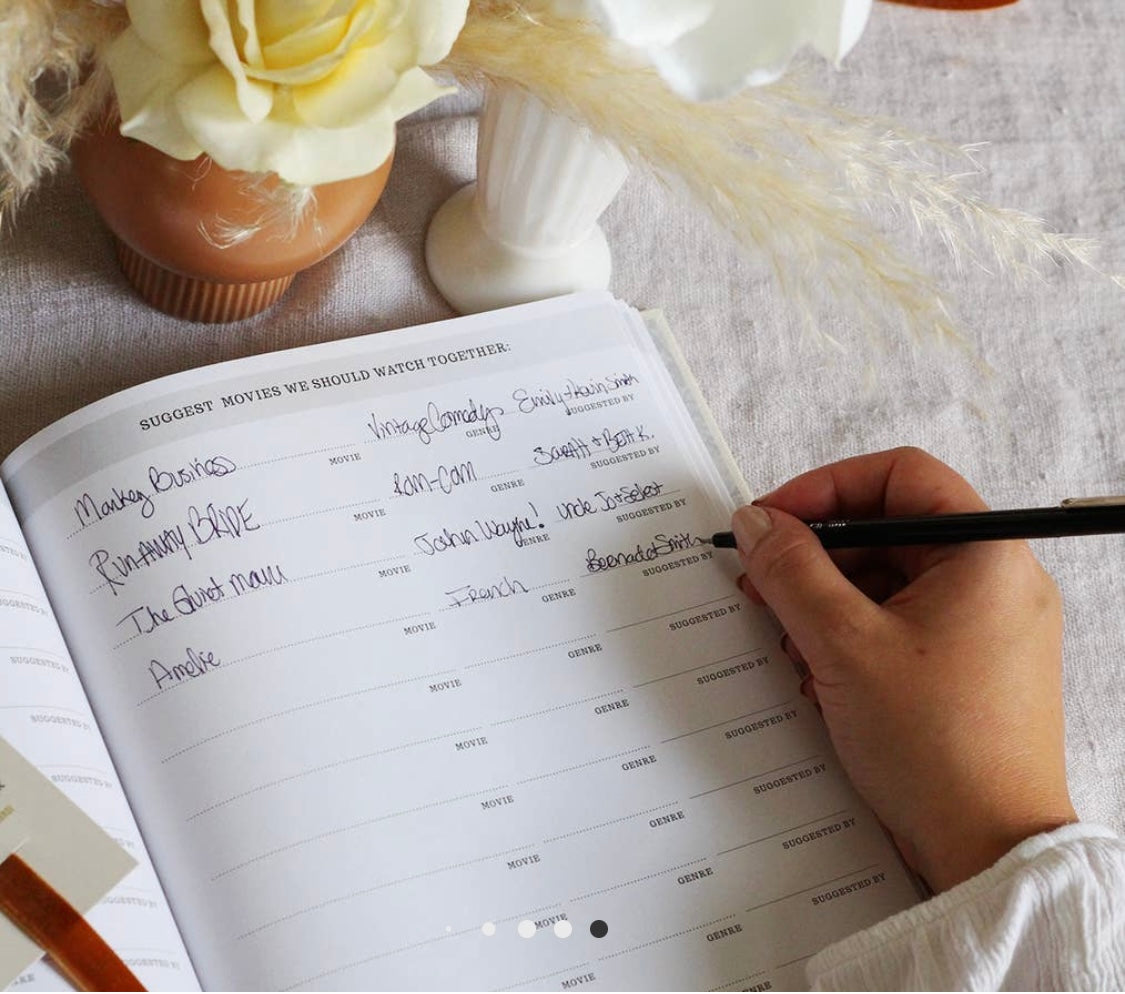 SUGGEST MOVIES WE SHOULD WATCH TOGETHER:
Monkey Business Vintage Comedy Emily + Kevin Smith
MOVIE GENRE SUGGESTED BY
RUNAWAY BRIDE Rom-Com SARAH + BETH K.
MOVIE GENRE SUGGESTED BY
The Quiet Man John Wayne! Uncle Jo +
MOVIE GENRE SUGGESTED BY
Amelie French Smith
MOVIE GENRE SUGGESTED BY
MOVIE GENRE SUGGESTED BY
MOVIE GENRE SUGGESTED BY
MOVIE GENRE SUGGESTED BY
MOVIE GENRE SUGGESTED BY
MOVIE GENRE SUGGESTED BY
MOVIE GENRE
SUGGESTED BY
SUGGESTED BY
SUGGESTED BY
SUGGESTED BY